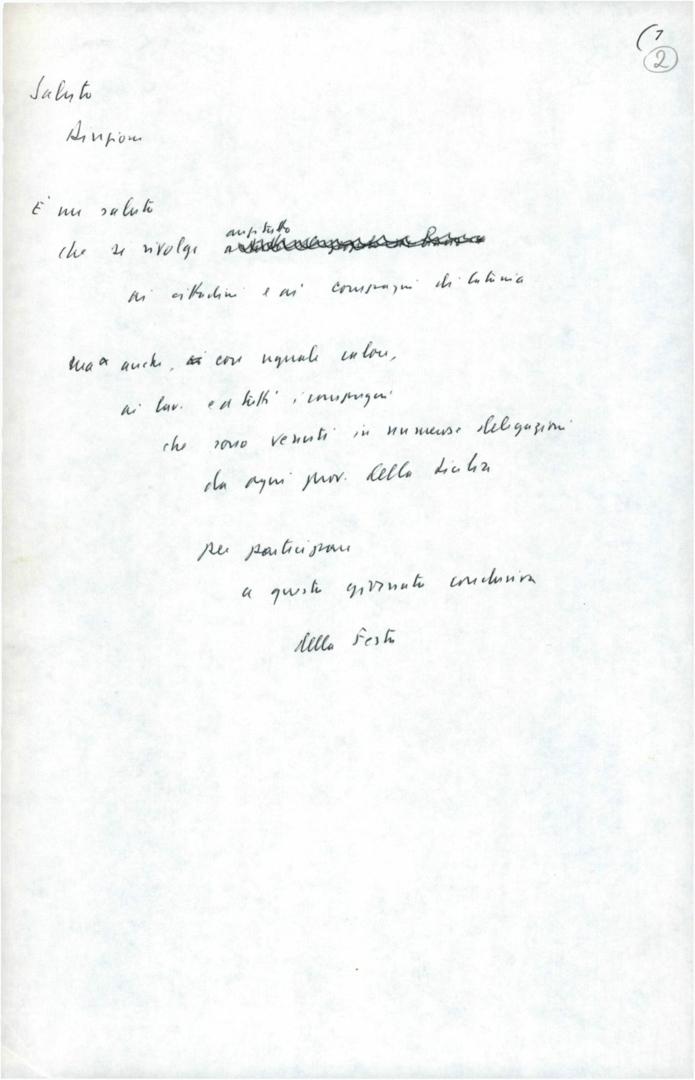 7
2
Saluto
Direzione
È un saluto
anzitutto
che si rivolge
ai cittadini e ai compagni di Catania
Ma anche, con uguale calore,
ai lav. e a tutti i compagni
che sono venuti in numerose delegazioni
da ogni prov. della Sicilia
per partecipare
a questa giornata conclusiva
della Festa